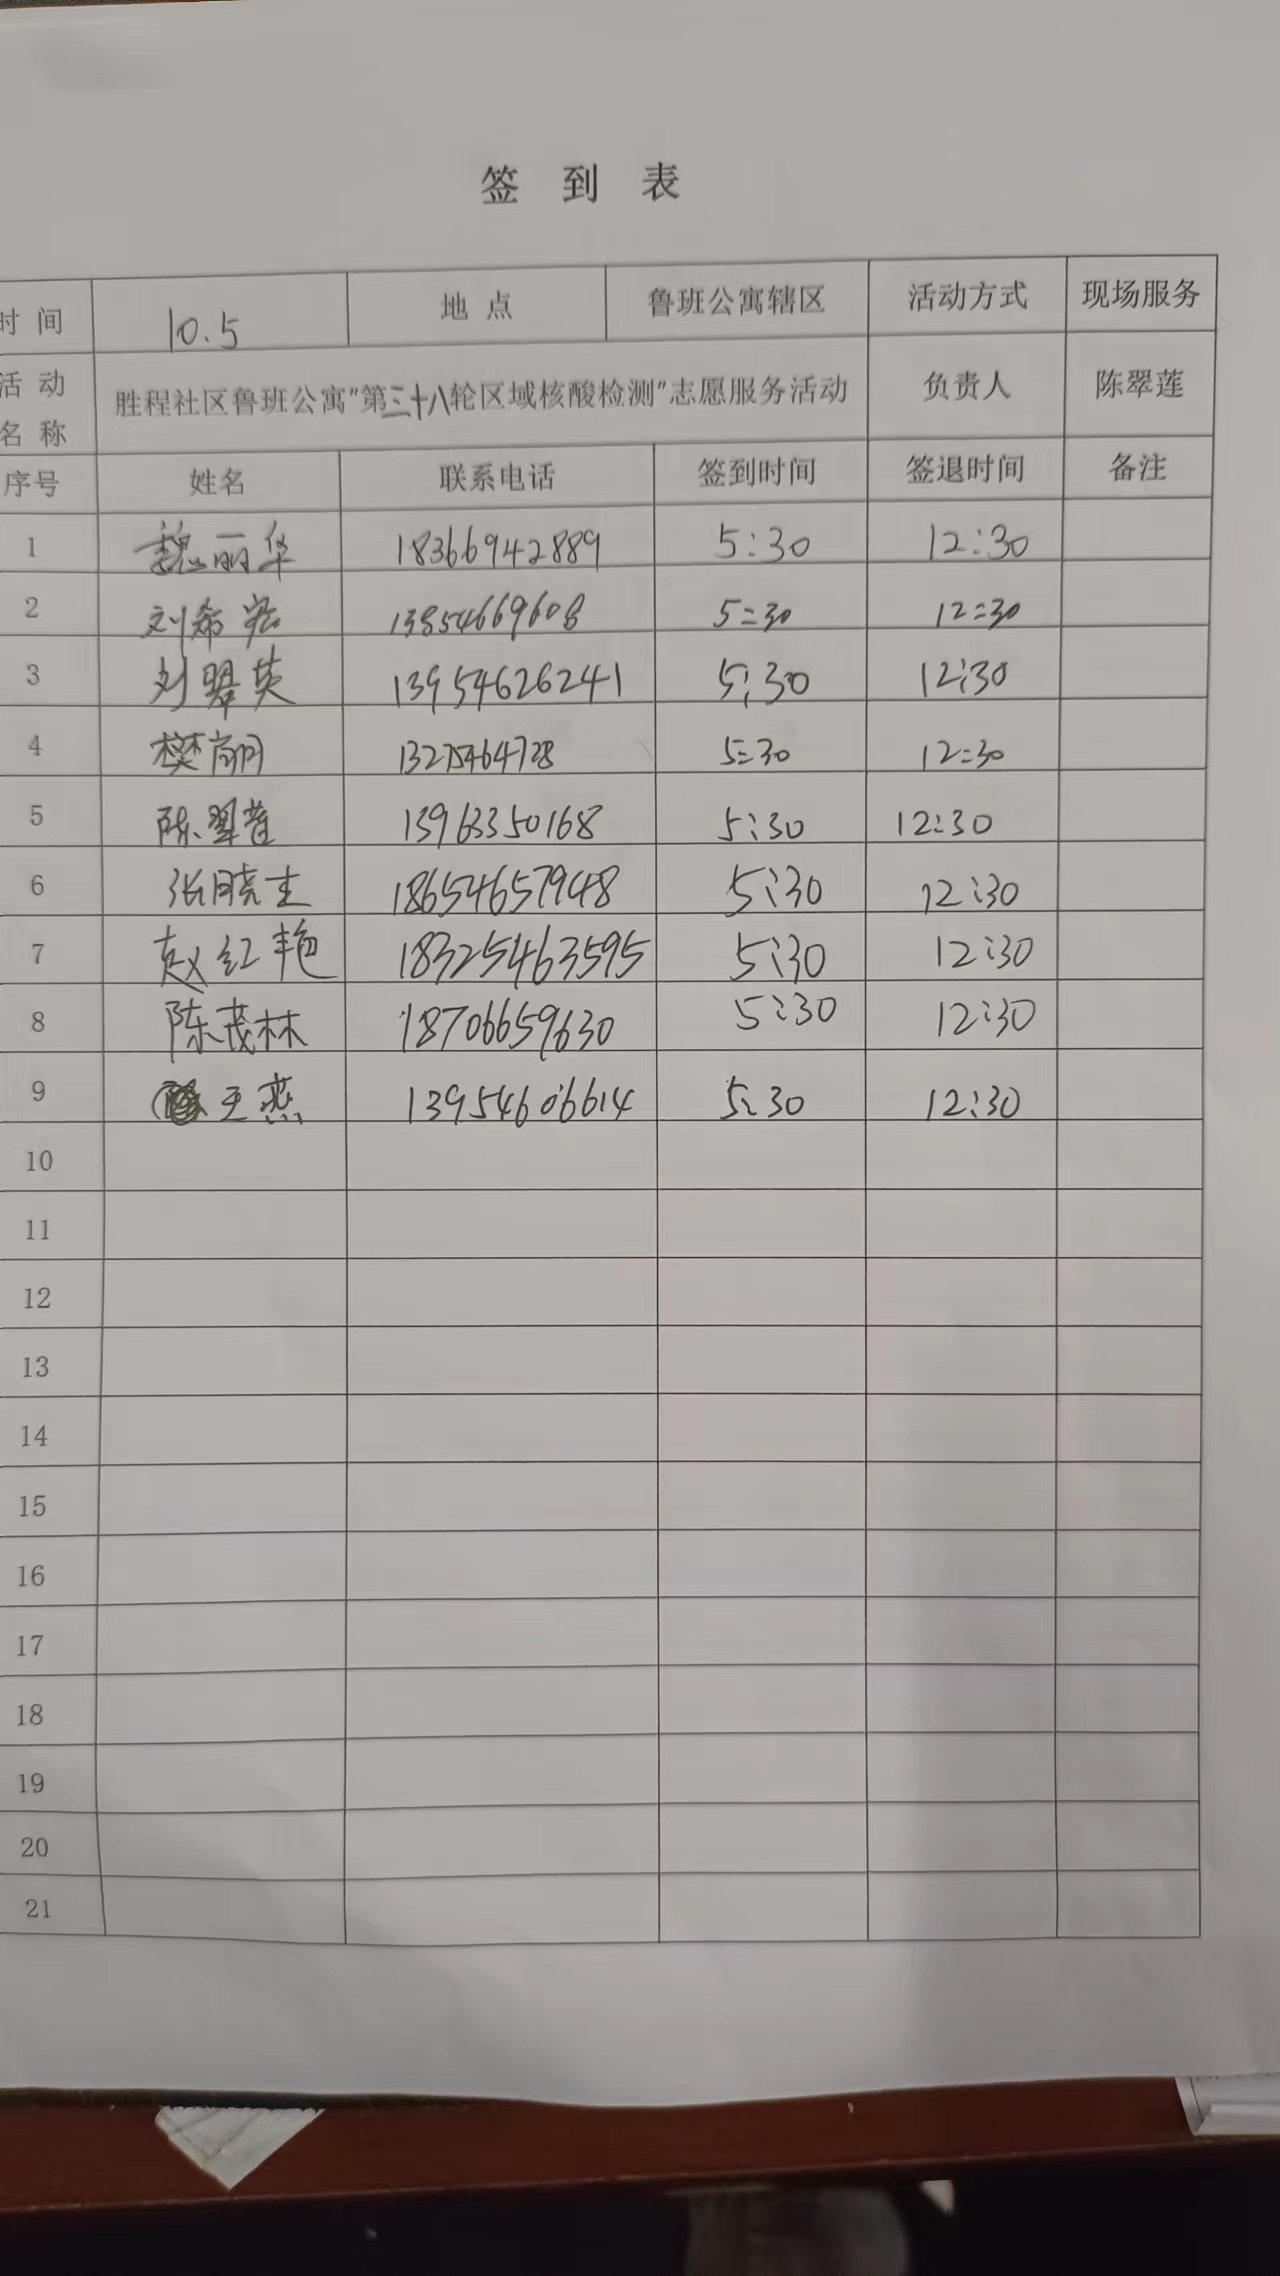 签 到 表
时 间 10.5 地 点 鲁班公寓辖区 活动方式 现场服务
活 动 名 称 胜程社区鲁班公寓"第三十八轮区域核酸检测"志愿服务活动 负责人 陈翠莲
序号 姓名 联系电话 签到时间 签退时间 备注
1 魏丽华 18366942889 5:30 12:30
2 刘希 13854669608 5:30 12:30
3 刘翠英 13954626241 5:30 12:30
4 樊丽 5:30 12:30
5 陈翠莲 13963350168 5:30 12:30
6 张晓 18654657948 5:30 12:30
7 赵红艳 18325463595 5:30 12:30
8 陈茂林 18706659630 5:30 12:30
9 王燕 13954606614 5:30 12:30
10
11
12
13
14
15
16
17
18
19
20
21